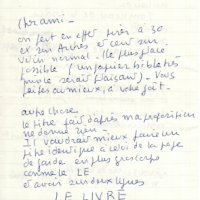 cher ami -
on fait en effet tirer à 30
ex sur Arches et ceux sur
vélin normal. Le plus
possible (un papier bible très
mince serait plaisant). Vous
faites au mieux, à votre goût.
autre chose
le titre fait d'après ma proposition
ne donne rien
Il vaudrait mieux faire un
titre identique à celui de la page
de garde en plus gros corps
comme LE
et avoir sur deux lignes
LE LIVRE